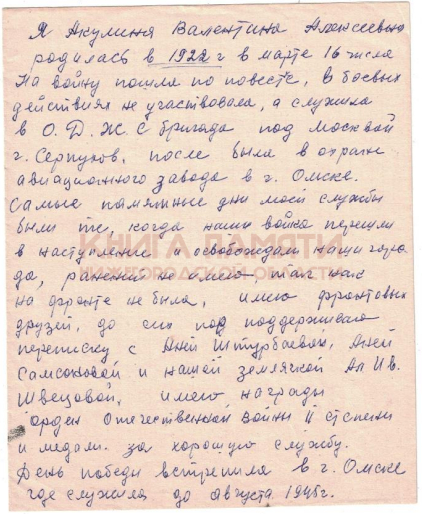 Я Акулина Валентина Алексеевна
родилась в 1922 г в марте 16 числа
На войну пошла по повестке, в боевых
действиях не участвовала, а служила
в О. Д. Ж. С бригада под Москвой
г. Серпухов, после была в охране
авиационного завода в г. Омске.
Самые памятные дни моей службы
были те, когда наши войка перешли
в наступление и освобождали наши горо
да, ранений не имею, так как
на фронте не была, имею фронтовых
друзей, до сих пор поддерживаю
переписку с Аней Штурбаевой, Аней
Самсоновой и нашей землячкой Ал Ив.
Швецовой, имею награды
орден Отечественной войны II степени
и медали. за хорошую службу.
День победы встретила в г. Омске
где служила до августа 1945г.
КНИГА ПАМЯТИ
НИЖЕГОРОДСКОЙ ОБЛАСТИ